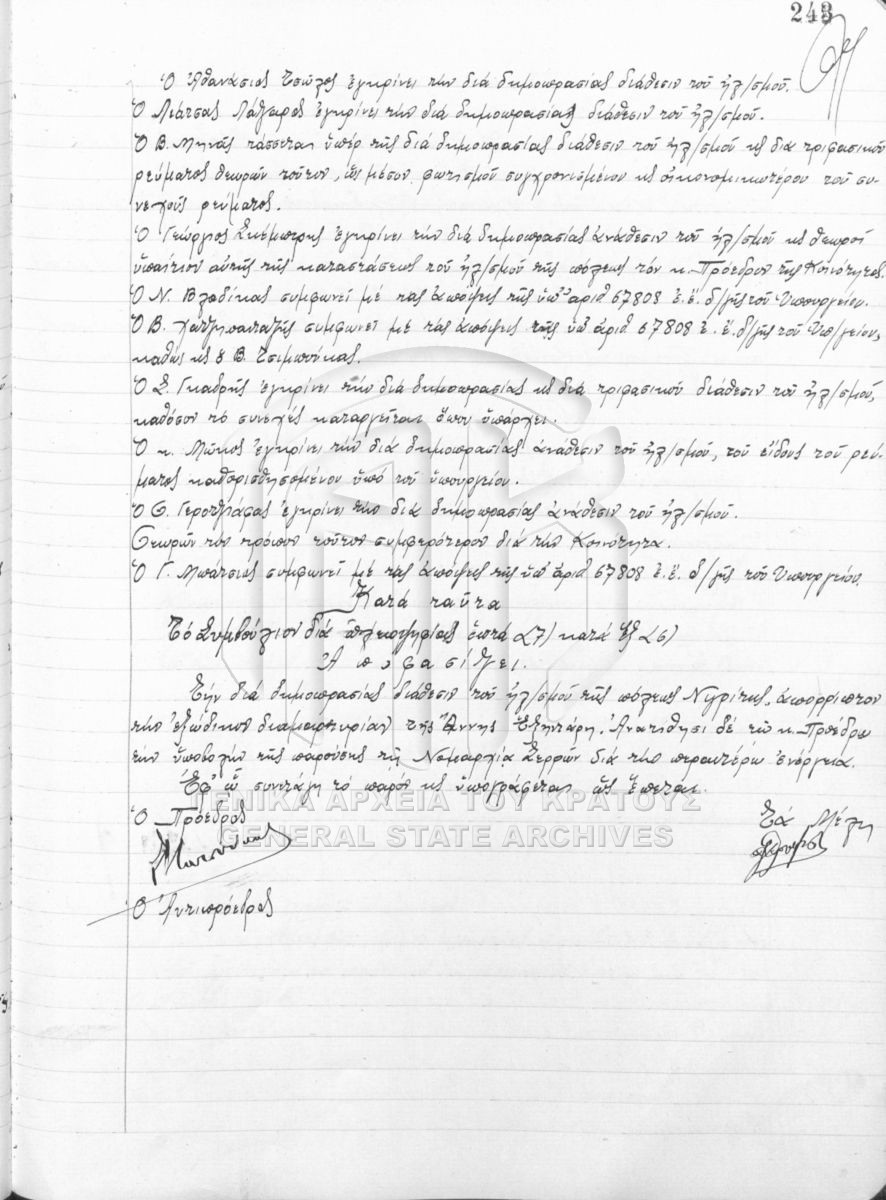 243
Ὁ Ἀθανάσιος Τσώλης ἐγκρίνει τήν διά δημοπρασίας διάθεσιν τοῦ ἠλ/σμοῦ.
Ὁ Λεάτσας Λάζαρος ἐγκρίνει τήν διά δημοπρασίας διάθεσιν τοῦ ἠλ/σμοῦ.
Ὁ Β. Μηνᾶς τάσσεται ὑπέρ τῆς διά δημοπρασίας διάθεσιν τοῦ ἠλ/σμοῦ κς διά τριφασικοῦ
ρεύματος θεωρῶν τοῦτον, ὡς μέσον φωτισμοῦ συγχρονισμένου κς οἰκονομικωτέρου τοῦ συ-
νεχοῦς ρεύματος.
Ὁ Γεώργιος Σκέμπρης ἐγκρίνει τήν διά δημοπρασίας ἀνάθεσιν τοῦ ἠλ/σμοῦ κς θεωρεῖ
ὑπαίτιον αὐτῆς τῆς καταστάσεως τοῦ ἠλ/σμοῦ τῆς πόλεως τόν κ. Πρόεδρον τῆς Κοινότητος.
Ὁ Ν. Βλαδίκας συμφωνεῖ μέ τάς ἀπόψεις τῆς ὑπ' ἀριθ 67808 ἐ. ἔ. δ/γῆς τοῦ Ὑπουργείου.
Ὁ Β. Χατζηπανταζῆς συμφωνεῖ μέ τάς ἀπόψεις τῆς ὑπ' ἀριθ 67808 ἐ. ἔ. δ/γῆς τοῦ Ὑπ/γείου,
καθώς κς ὁ Β. Τσιμπούκας.
Ὁ Σ. Γκαδρῆς ἐγκρίνει τήν διά δημοπρασίας κς διά τριφασικοῦ διάθεσιν τοῦ ἠλ/σμοῦ,
καθόσον τό συνεχές καταργεῖται ὅπου ὑπάρχει.
Ὁ κ. Μῶκος ἐγκρίνει τήν διά δημοπρασίας ἀνάθεσιν τοῦ ἠλ/σμοῦ, τοῦ εἴδους τοῦ ρεύ-
ματος καθορισθησομένου ὑπό τοῦ ὑπουργείου.
Ὁ Θ. Γεροτζιάφας ἐγκρίνει τήν διά δημοπρασίας ἀνάθεσιν τοῦ ἠλ/σμοῦ.
Θεωρῶν τόν τρόπον τοῦτον συμφερότερον διά τήν Κοινότητα.
Ὁ Γ. Μπάτσιος συμφωνεῖ μέ τάς ἀπόψεις τῆς ὑπ' ἀριθ 67808 ἐ. ἔ. δ/γῆς τοῦ Ὑπουργείου.
Κατά ταῦτα
Τό Συμβούλιον διά πλειοψηφίας ἑπτά (7) κατά ἕξ (6)
Ἀποφασίζει.
Τήν διά δημοπρασίας διάθεσιν τοῦ ἠλ/σμοῦ τῆς πόλεως Νιγρίτης, ἀπορρίπτον
τήν ἐξώδικον διαμαρτυρίαν τῆς Ἄννης Ἐξηντάρη. Ἀνατίθησι δέ τῷ κ. Προέδρῳ
τήν ὑποβολήν τῆς παρούσης τῇ Νομαρχίᾳ Σερρῶν διά τήν περαιτέρω ἐνέργειαν.
Ἐφ' ᾧ συνετάγη τό παρόν κς ὑπογράφεται ὡς ἕπεται.
Ὁ Πρόεδρος Τά Μέλη
Ὁ Ἀντιπρόεδρος
ΓΕΝΙΚΑ ΑΡΧΕΙΑ ΤΟΥ ΚΡΑΤΟΥΣ
GENERAL STATE ARCHIVES